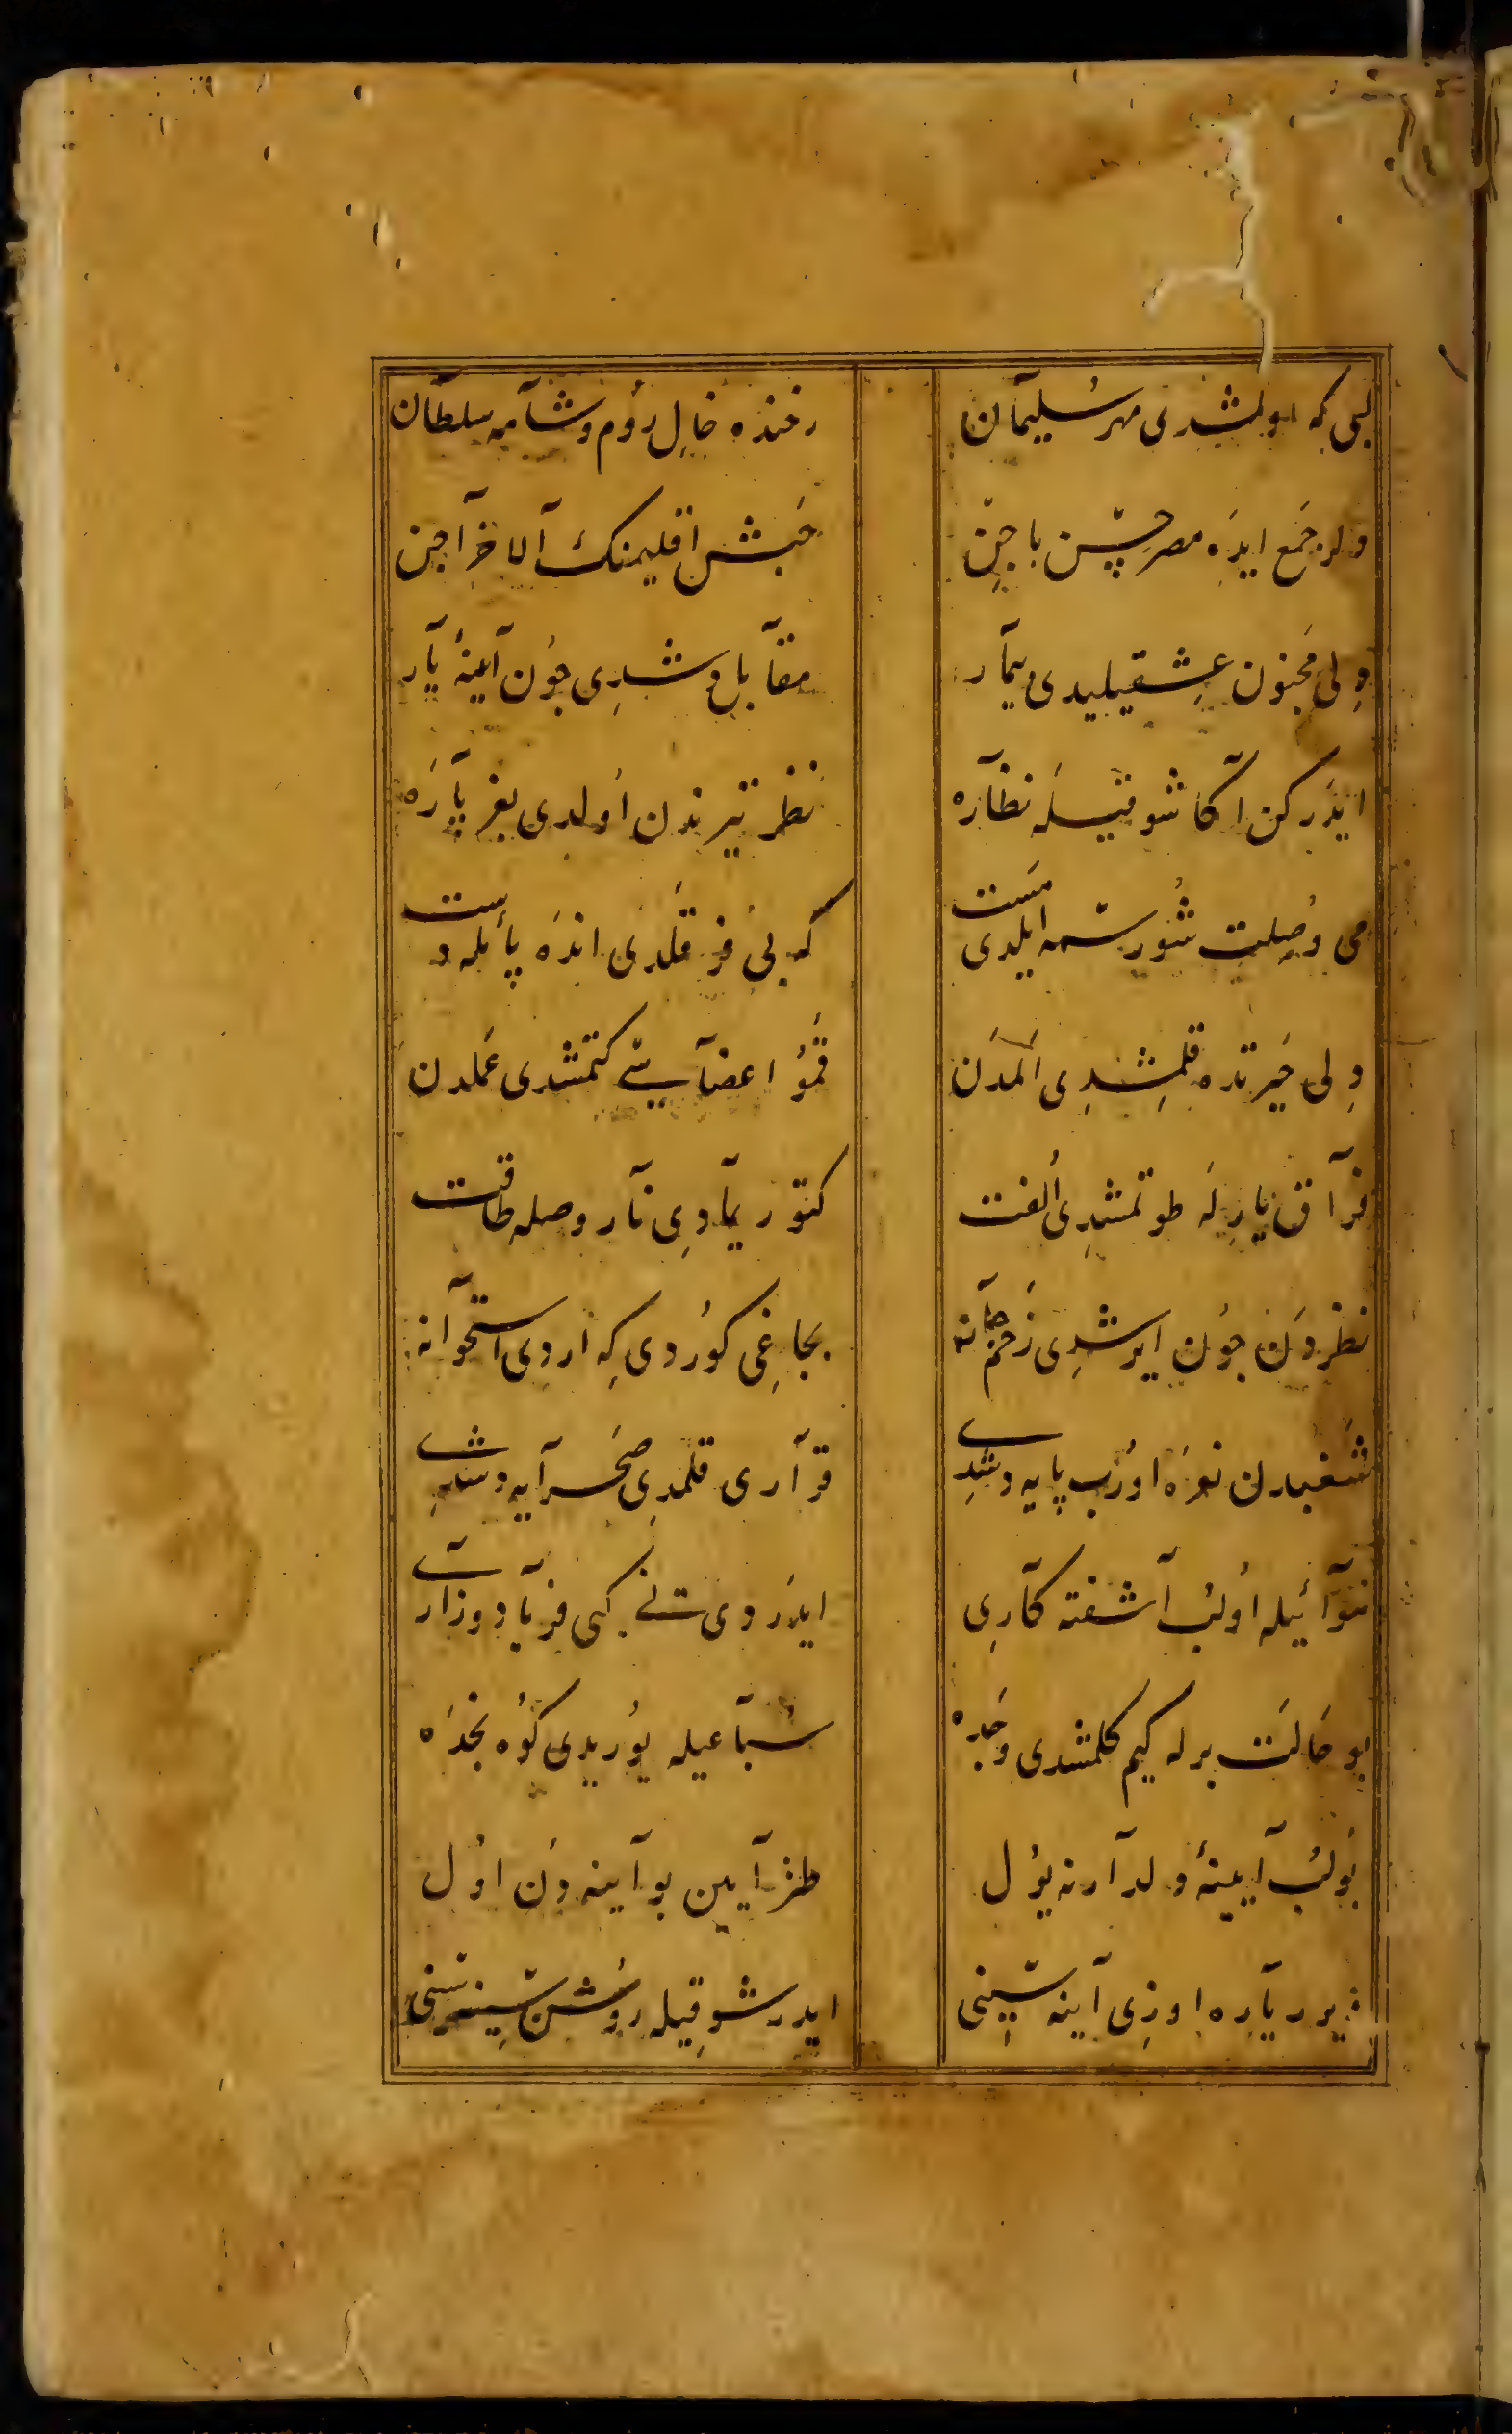 لبی که اولمشدی مهر سلیمان
رخنده خال روم و شامه سلطان
ولر جمع ایده مصر حسن باجن
حبش اقلیمنک آلا خراجن
ولی مجنون عشقیلیدی بیمار
مقابل دوشدی چون آیینۀ یار
ایدرکن آکا شوقیله نظاره
نظر تیرندن اولدی بغر پاره
می وصلت شوریسه ایلدی مست
که بی فرقلدی انده پایله دست
ولی حیرتده قلمشدی المدن
قمو اعضاسی کتمشدی عملدن
فراق یاریله طوتمشدی الفت
کتوریمادی نار وصله طاقت
نظردن چون ایرشدی زخم جانه
بجاغی کوردی که اردی استخوانه
شغبدن نعره اورب پایه دشدی
قراری قلمدی صحرایه دشدی
نوائیله اولب آشفته کاری
ایدردی نی کبی فریاد و زاری
بو حالت برله کیم کلمشدی وجده
سباعیله یوریدی کوه نجده
بولب آیینۀ دلدارنه یول
طزایین بو آینه دن اول
ویر یاره اوزی آینه سینی
ایدر شوقیله روشن سینه سینی